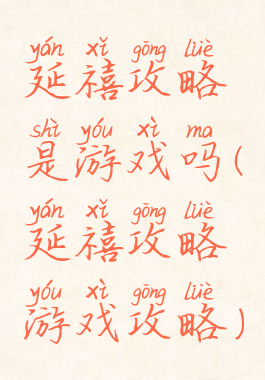 yán xǐ gōng lüè
延禧攻略
shì yóu xì ma
是游戏吗(
yán xǐ gōng lüè
延禧攻略
yóu xì gōng lüè
游戏攻略)